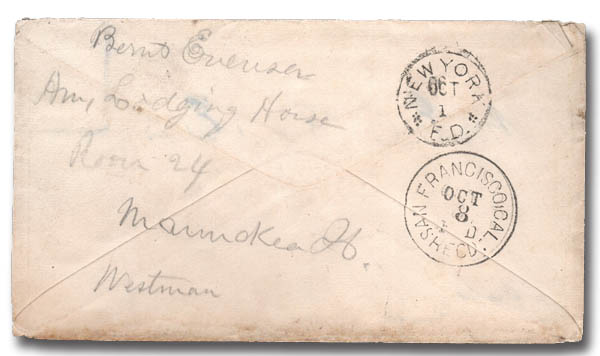 Bernt Evensen
Am, Lodging House
Room 24
Maunakea St.
Westman
NEW YORK
OCT
1
F.D.
FRANCISCO, CAL.
OCT
8
D.